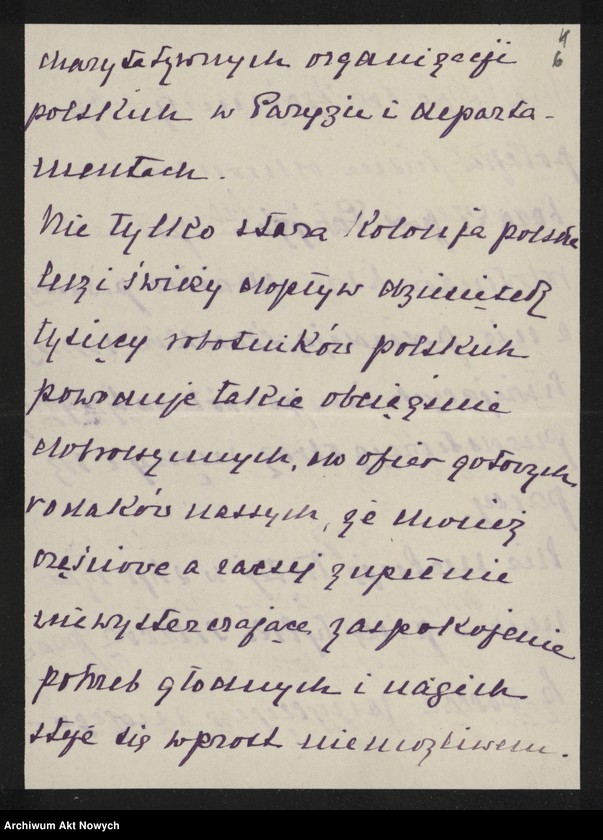 4
6
charytatywnych organizacji
polskich w Paryżu i departa-
mentach.
Nie tylko stara Kolonja polska
lecz i świeży dopływ dziesiątek
tysięcy robotników polskich
powoduje takie obciążenie
dobroczynnych, do ofiar gotowych
rodaków naszych, że choćież
częściowe a raczej zupełnie
niewysterczające zaspokojenie
potrzeb głodnych i nagich
staje się wprost niemożliwem.
Archiwum Akt Nowych